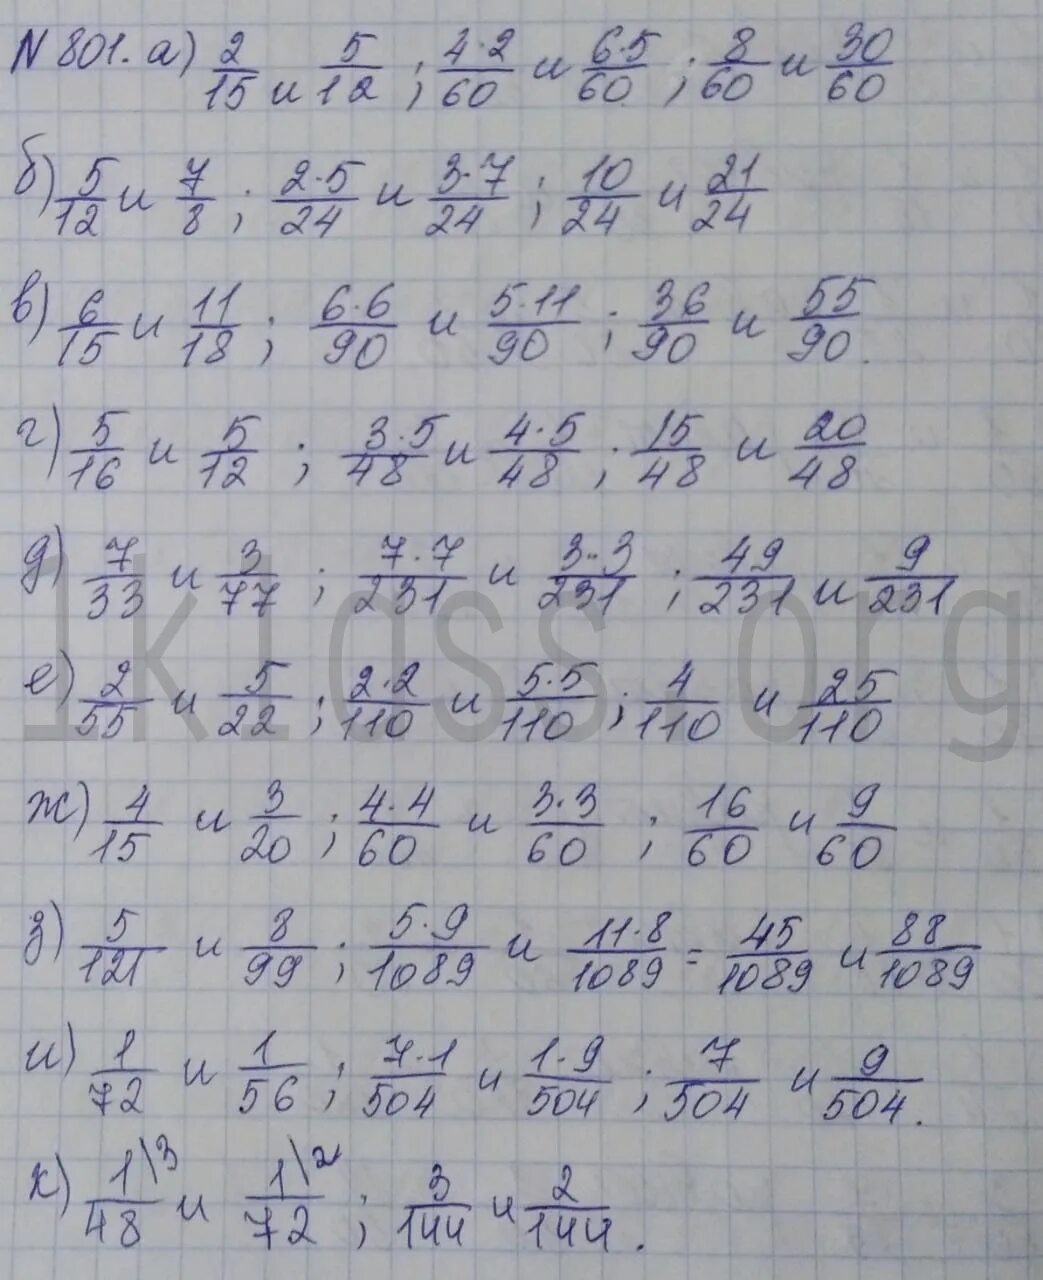 № 801. а) 2/15 и 5/12 ; 4·2/60 и 6·5/60 ; 8/60 и 30/60
б) 5/12 и 7/8 ; 2·5/24 и 3·7/24 ; 10/24 и 21/24
в) 6/15 и 11/18 ; 6·6/90 и 5·11/90 ; 36/90 и 55/90.
г) 5/16 и 5/12 ; 3·5/48 и 4·5/48 ; 15/48 и 20/48
д) 7/33 и 3/77 ; 7·7/231 и 3·3/231 ; 49/231 и 9/231
1klass.org
е) 2/55 и 5/22 ; 2·2/110 и 5·5/110 ; 4/110 и 25/110
ж) 4/15 и 3/20 ; 4·4/60 и 3·3/60 ; 16/60 и 9/60
з) 5/121 и 8/99 ; 5·9/1089 и 11·8/1089 = 45/1089 и 88/1089
и) 1/72 и 1/56 ; 7·1/504 и 1·9/504 ; 7/504 и 9/504.
к) 1\3/48 и 1\2/72 ; 3/144 и 2/144.